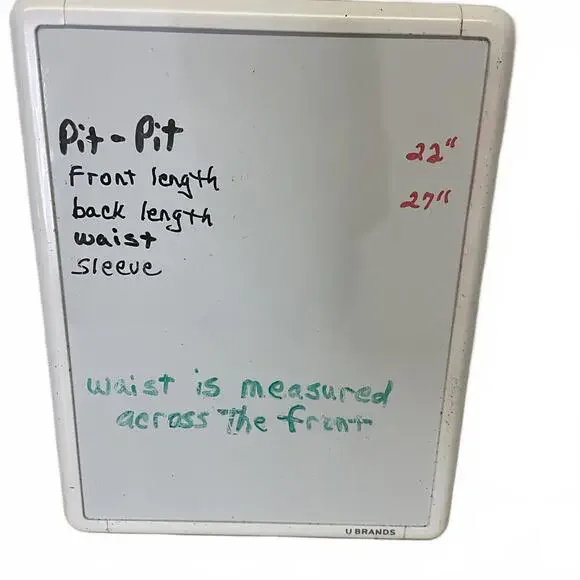 Pit-Pit 22"
Front length
back length 27"
waist
sleeve
waist is measured
across The front
U BRANDS